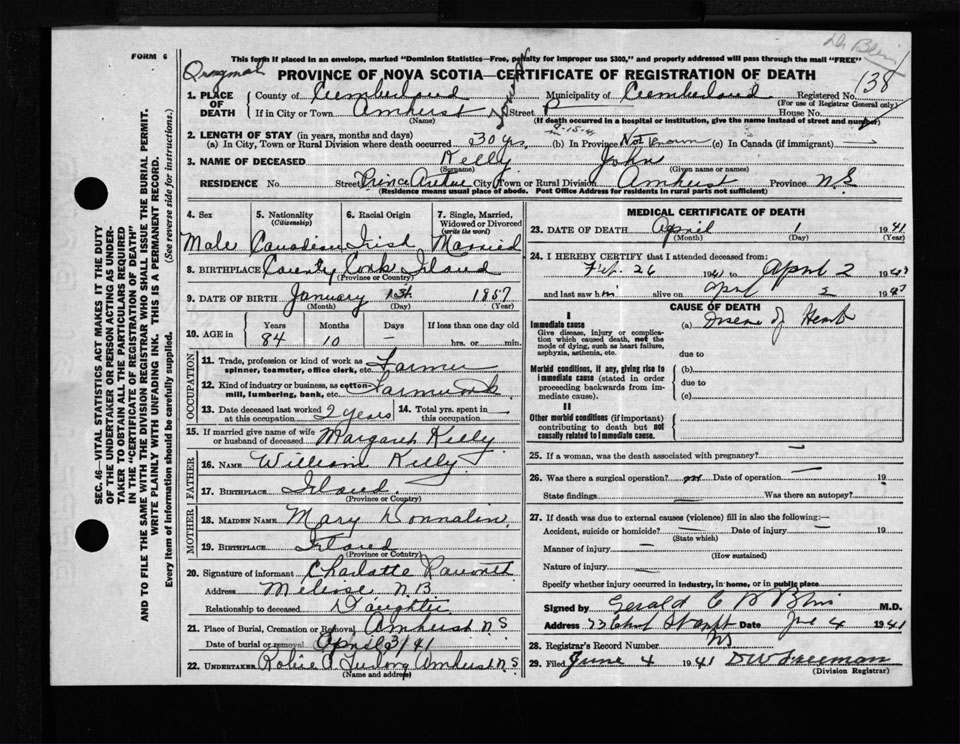 FORM 6
This form if placed in an envelope, marked "Dominion Statistics—Free, penalty for improper use $300," and properly addressed will pass through the mail "FREE"
PROVINCE OF NOVA SCOTIA—CERTIFICATE OF REGISTRATION OF DEATH
138
1. PLACE OF DEATH County of Cumberland Municipality of Cumberland Registered No.
(For use of Registrar General only)
If in City or Town Amherst Street House No.
(Name) (If death occurred in a hospital or institution, give the name instead of street and number)
9-15-41
2. LENGTH OF STAY (in years, months and days)
(a) In City, Town or Rural Division where death occurred 30 yrs (b) In Province Not Known (c) In Canada (if immigrant) —
3. NAME OF DECEASED Kelly John
(Surname) (Given name or names)
RESIDENCE No. Street Prince Avenue City, Town or Rural Division Amherst Province N.S.
(Residence means usual place of abode. Post Office Address for residents in rural parts not sufficient)
4. Sex 5. Nationality (Citizenship) 6. Racial Origin 7. Single, Married, Widowed or Divorced (write the word)
Male Canadian Irish Married
8. BIRTHPLACE County Cork Ireland
(Province or Country)
9. DATE OF BIRTH January 1st. 1857
(Month) (Day) (Year)
10. AGE in Years Months Days If less than one day old
84 10 — hrs. or min.
OCCUPATION
11. Trade, profession or kind of work as spinner, teamster, office clerk, etc. Farmer
12. Kind of industry or business, as cotton-mill, lumbering, bank, etc. Farming
13. Date deceased last worked at this occupation 2 years 14. Total yrs. spent in this occupation
15. If married give name of wife or husband of deceased Margaret Kelly
FATHER
16. NAME William Kelly
17. BIRTHPLACE Ireland.
(Province or Country)
MOTHER
18. MAIDEN NAME Mary
19. BIRTHPLACE Ireland
(Province or Country)
20. Signature of informant Charlotte
Address Melrose N.B.
Relationship to deceased Daughter
21. Place of Burial, Cremation or Removal Amherst N.S
Date of burial or removal April 3/41
22. UNDERTAKER Amherst N.S
(Name and address)
MEDICAL CERTIFICATE OF DEATH
23. DATE OF DEATH April 1 1941
(Month) (Day) (Year)
24. I HEREBY CERTIFY that I attended deceased from:
Feb. 26 1941 to April 2 194
and last saw h im alive on April 2 194
CAUSE OF DEATH
I
Immediate cause
Give disease, injury or complication which caused death, not the mode of dying, such as heart failure, asphyxia, asthenia, etc.
(a) Disease of Heart
due to
Morbid conditions, if any, giving rise to immediate cause (stated in order proceeding backwards from immediate cause).
(b)
due to
(c)
II
Other morbid conditions (if important) contributing to death but not causally related to immediate cause.
25. If a woman, was the death associated with pregnancy? —
26. Was there a surgical operation? no Date of operation — 19
State findings Was there an autopsy?
27. If death was due to external causes (violence) fill in also the following:—
Accident, suicide or homicide? — Date of injury — 19
(State which)
Manner of injury —
(How sustained)
Nature of injury —
Specify whether injury occurred in industry, in home, or in public place
Signed by Gerald M.D.
Address Date June 4 1941
28. Registrar's Record Number
29. Filed June 4 1941 D W Freeman
(Division Registrar)
SEC. 46—VITAL STATISTICS ACT MAKES IT THE DUTY
OF THE UNDERTAKER OR PERSON ACTING AS UNDER-
TAKER TO OBTAIN ALL THE PARTICULARS REQUIRED
IN THE "CERTIFICATE OF REGISTRATION OF DEATH"
AND TO FILE THE SAME WITH THE DIVISION REGISTRAR WHO SHALL ISSUE THE BURIAL PERMIT.
WRITE PLAINLY WITH UNFADING INK. THIS IS A PERMANENT RECORD.
Every item of information should be carefully supplied. (See reverse side for instructions.)